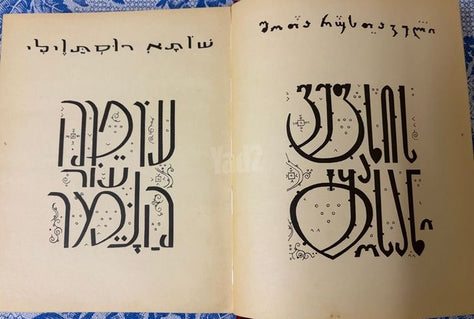 שׁוֹתָא רוּסְתָוֶילִי
עוֹטֵה
עוֹר
הַנָּמֵר
შოთა რუსთაველი
ვეფხის
ტყა
ოსანი
Yad2